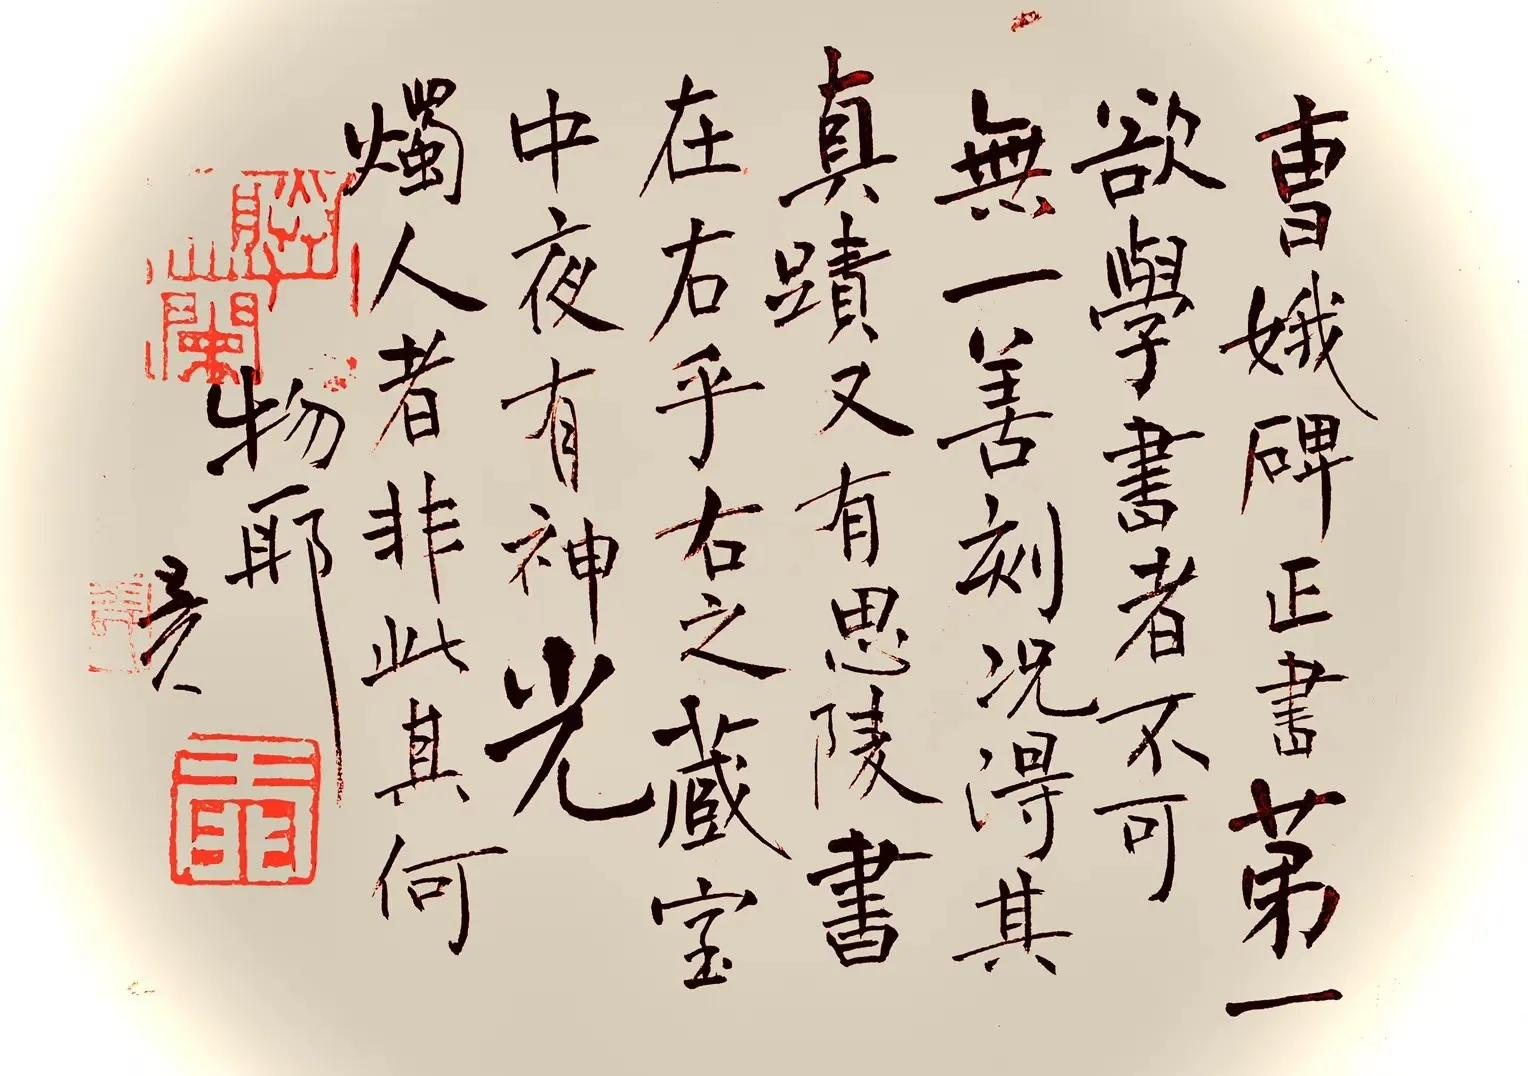 曹娥碑正書第一
欲學書者不可
無一善刻況得其
真蹟又有思陵書
在右乎右之藏室
中夜有神光
燭人者非此真何
物耶